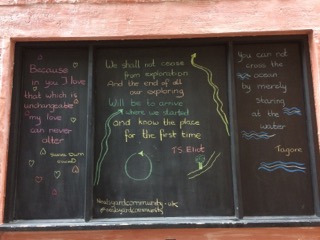 Because
in you I love
that which is
unchangeable
my love
can never
alter
We shall not cease
from exploration
And the end of all
our exploring
Will be to arrive
where we started
and know the place
for the first time
T.S. Eliot
You can not
cross the
ocean
by merely
staring
at the
water
Tagore